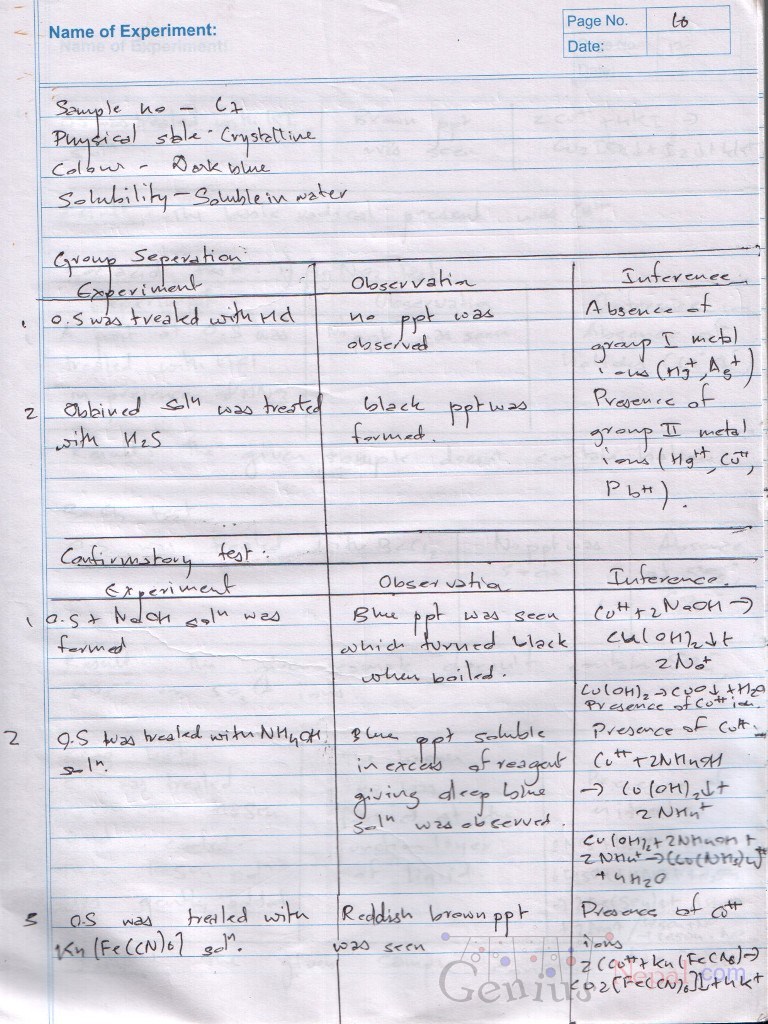 Name of Experiment:
Page No. 6
Date:
Sample no – C7
Physical state - Crystalline
Colour - Dark blue
Solubility – Soluble in water
Group Seperation
Experiment Observation Inference
1 O.S was treated with HCl
no ppt was
observed
Absence of
group I metal
ions (Hg+, Ag+)
2 Obtained soln was treated
with H2S
black ppt was
formed.
Presence of
group II metal
ions (Hg++, Cu++,
Pb++).
Confirmatory test:
Experiment Observation Inference.
1 O.S + NaOH soln was
formed
Blue ppt was seen
which turned black
when boiled.
Cu++ + 2NaOH →
Cu(OH)2↓ +
2Na+
Cu(OH)2 → CuO↓ + H2O
Presence of Cu++ ion.
2 O.S was treated with NH4OH
soln.
Blue ppt soluble
in excess of reagent
giving deep blue
soln was observed.
Presence of Cu++.
Cu++ + 2NH4OH
→ Cu(OH)2↓ +
2NH4+
Cu(OH)2 + 2NH4OH +
2NH4+ → [Cu(NH3)4]++
+ 4H2O
3 O.S was treated with
K4[Fe(CN)6] soln.
Reddish brown ppt
was seen
Presence of Cu++
ions
2Cu++ + K4[Fe(CN)6] →
Cu2[Fe(CN)6]↓ + 4K+
Genius Nepal.com